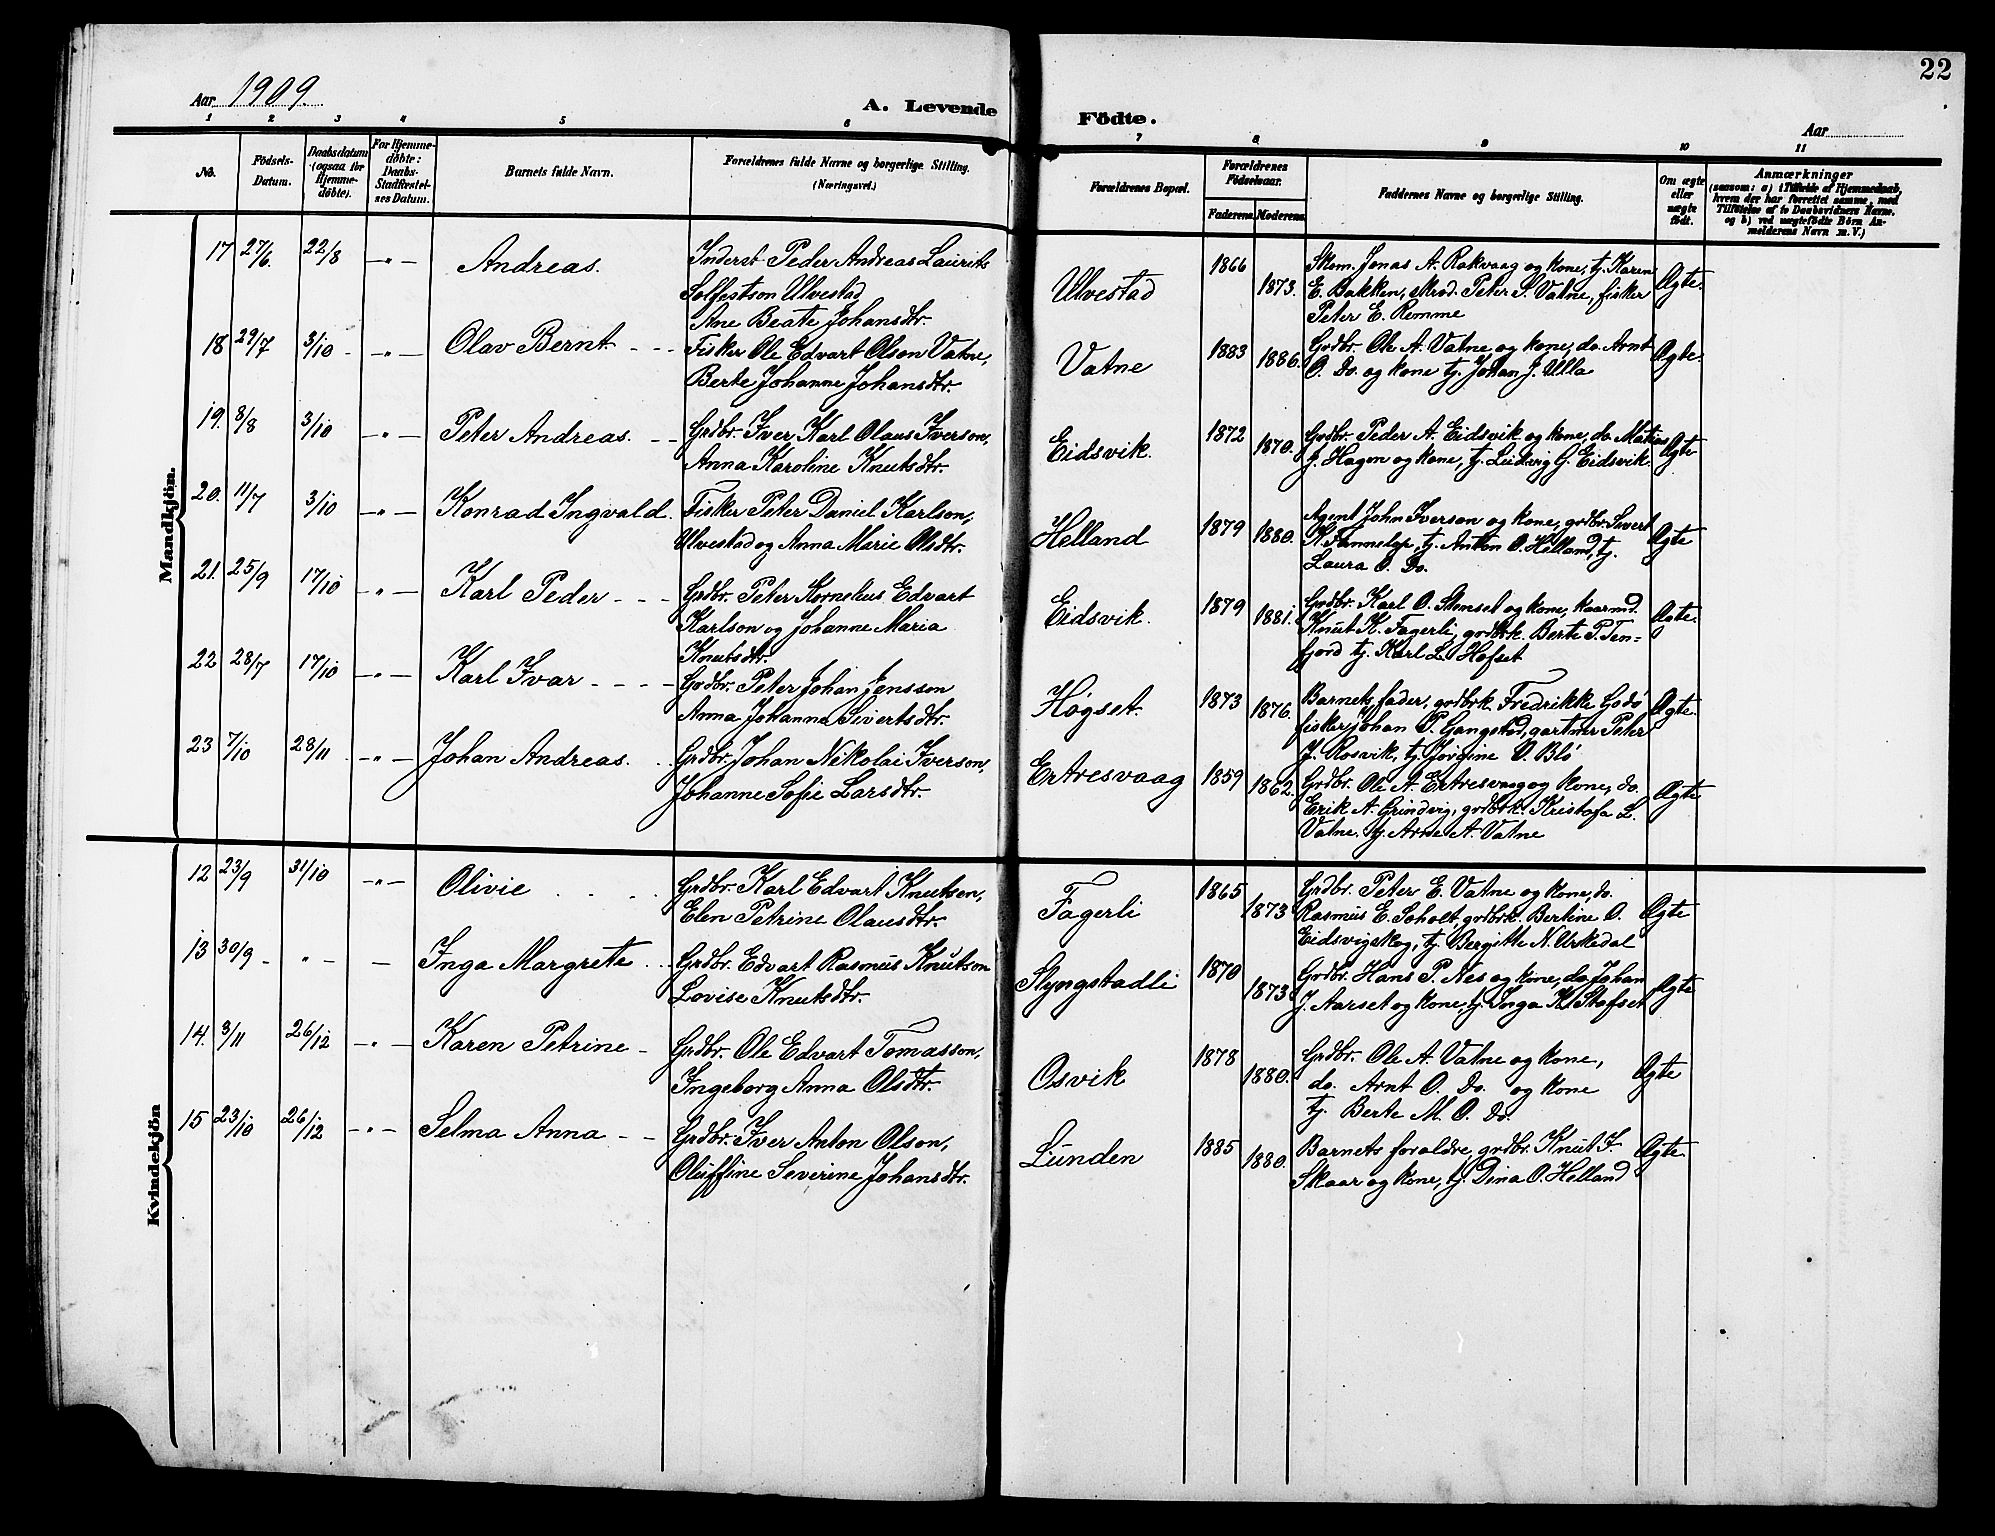 22
Aar 1909.
A. Levende Födte.
Aar
1 2 3 4 5 6 7 8 9 10 11
No.
Födsels-Datum.
Daabsdatum (ogsaa for Hjemmedøbte).
For Hjemmedøbte: Daabs-Stadfæstelses Datum.
Barnets fulde Navn.
Forældrenes fulde Navne og borgerlige Stilling. (Næringsvei.)
Forældrenes Bopæl.
Forældrenes Födselsaar.
Faderens. Moderens.
Faddernes Navne og borgerlige Stilling.
Om ægte eller uægte født.
Anmærkninger
(saasom: a) i Tilfælde af Hjemmedaab, hvem der har forrettet samme, med Tilföielse af to Daabsvidners Navne, og b) ved uægtefödte Börn Anmelderens Navn m. V.)
Mandkjön.
17 27/6. 22/8 —"— Andreas. Inderst Peder Andreas Laurits
Solfestson Ulvestad
Ane Beate Johansdtr.
Ulvestad 1866 1873.
Skom. Jonas A. Rakvaag og kone, tj. Karen
E. Bakken, Peter S. Vatne, fisker
Peter E. Remme
Ægte.
18 29/7 3/10 —"— Olav Bernt - - Fisker Ole Edvart Olson Vatne,
Berte Johanne Johansdtr.
Vatne 1883 1886.
Grdbr. Ole A. Vatne og kone, do. Arnt
O. Do. og kone tj. Johan J. Ulla
Ægte.
19. 8/8 3/10 —"— Peter Andreas. - - Grdbr. Iver Karl Olaus Iverson,
Anna Karoline Knutsdtr.
Eidsvik. 1872 1870.
Grdbr. Peder A. Eidsvik og kone, do. Matias
J. Hagen og kone, tj. Ludvig G. Eidsvik.
Ægte
20. 11/7 3/10 —"— Konrad Ingvald. Fisker Peter Daniel Karlson,
Ulvestad og Anna Marie Olsdtr.
Helland 1879 1880.
Agent John Iverson og kone, grdbr. Sivert
K. tj. Anton O. Helland, tj.
Laura O. Do.
Ægte
21. 25/9 17/10 —"— Karl Peder - - - Grdbr. Peter Kornelius Edvart
Karlson og Johanne Maria
Knutsdtr.
Eidsvik. 1879 1881.
Grdbr. Karl O. Stenset og kone, kaarmd.
Knut K. Fagerli, grdbrk. Berte P. Ten-
fjord tj. Karl L. Hofset
Ægte.
22 28/7 17/10 —"— Karl Ivar - - - - Grdbr. Peter Johan Jensson
Anna Johanna Sivertsdtr.
Høgset. 1873 1876.
Barnets fader, grdbrk. Fredrikke Godø
fisker Johan P. Gangstad, gartner Peter
J. Rosvik, tj. Jørgine O. Blø
Ægte.
23 7/10 28/11 —"— Johan Andreas. . . Grdbr. Johan Nikolai Iverson,
Johanne Sofie Larsdtr.
Ertresvaag 1859 1862.
Grdbr. Ole A. Ertresvaag og kone, do.
Erik A. Grindvig, grdbrk. Kristofa L.
Vatne, tj. Arne A. Vatne
Ægte
Kvindekjön
12 23/9 31/10 —"— Olivie . . . . Grdbr. Karl Edvart Knutson,
Elen Petrine Olausdtr.
Fagerli 1865 1873
Grdbr. Peter E. Vatne og kone, do.
Rasmus E. Soholt, grdbrk. Bertine O.
Eidsvigskog, tj. Bergitte N. Urkedal
Ægte
13 30/9 - " - — Inga Margrete . . Grdbr. Edvart Rasmus Knutson
Lovise Knutsdtr.
Slyngstadli 1870 1873
Grdbr. Hans P. Nes og kone, do Johan
J. Aarset og kone, tj. Inga K.
Ægte
14. 3/11 26/12 —"— Karen Petrine - Grdbr. Ole Edvart Tomasson,
Ingeborg Anna Olsdtr.
Osvik 1878 1880.
Grdbr. Ole A. Vatne og kone,
do. Arnt O. Do. og kone
tj. Berte M. O. Do.
Ægte
15 23/10 26/12 —"— Selma Anna - - Grdbr. Iver Anton Olson,
Oluffine Severine Johansdtr.
Lunden 1885 1880.
Barnets foraldre, grdbr. Knut I.
Skaar og kone, tj. Dina O. Helland
Ægte.